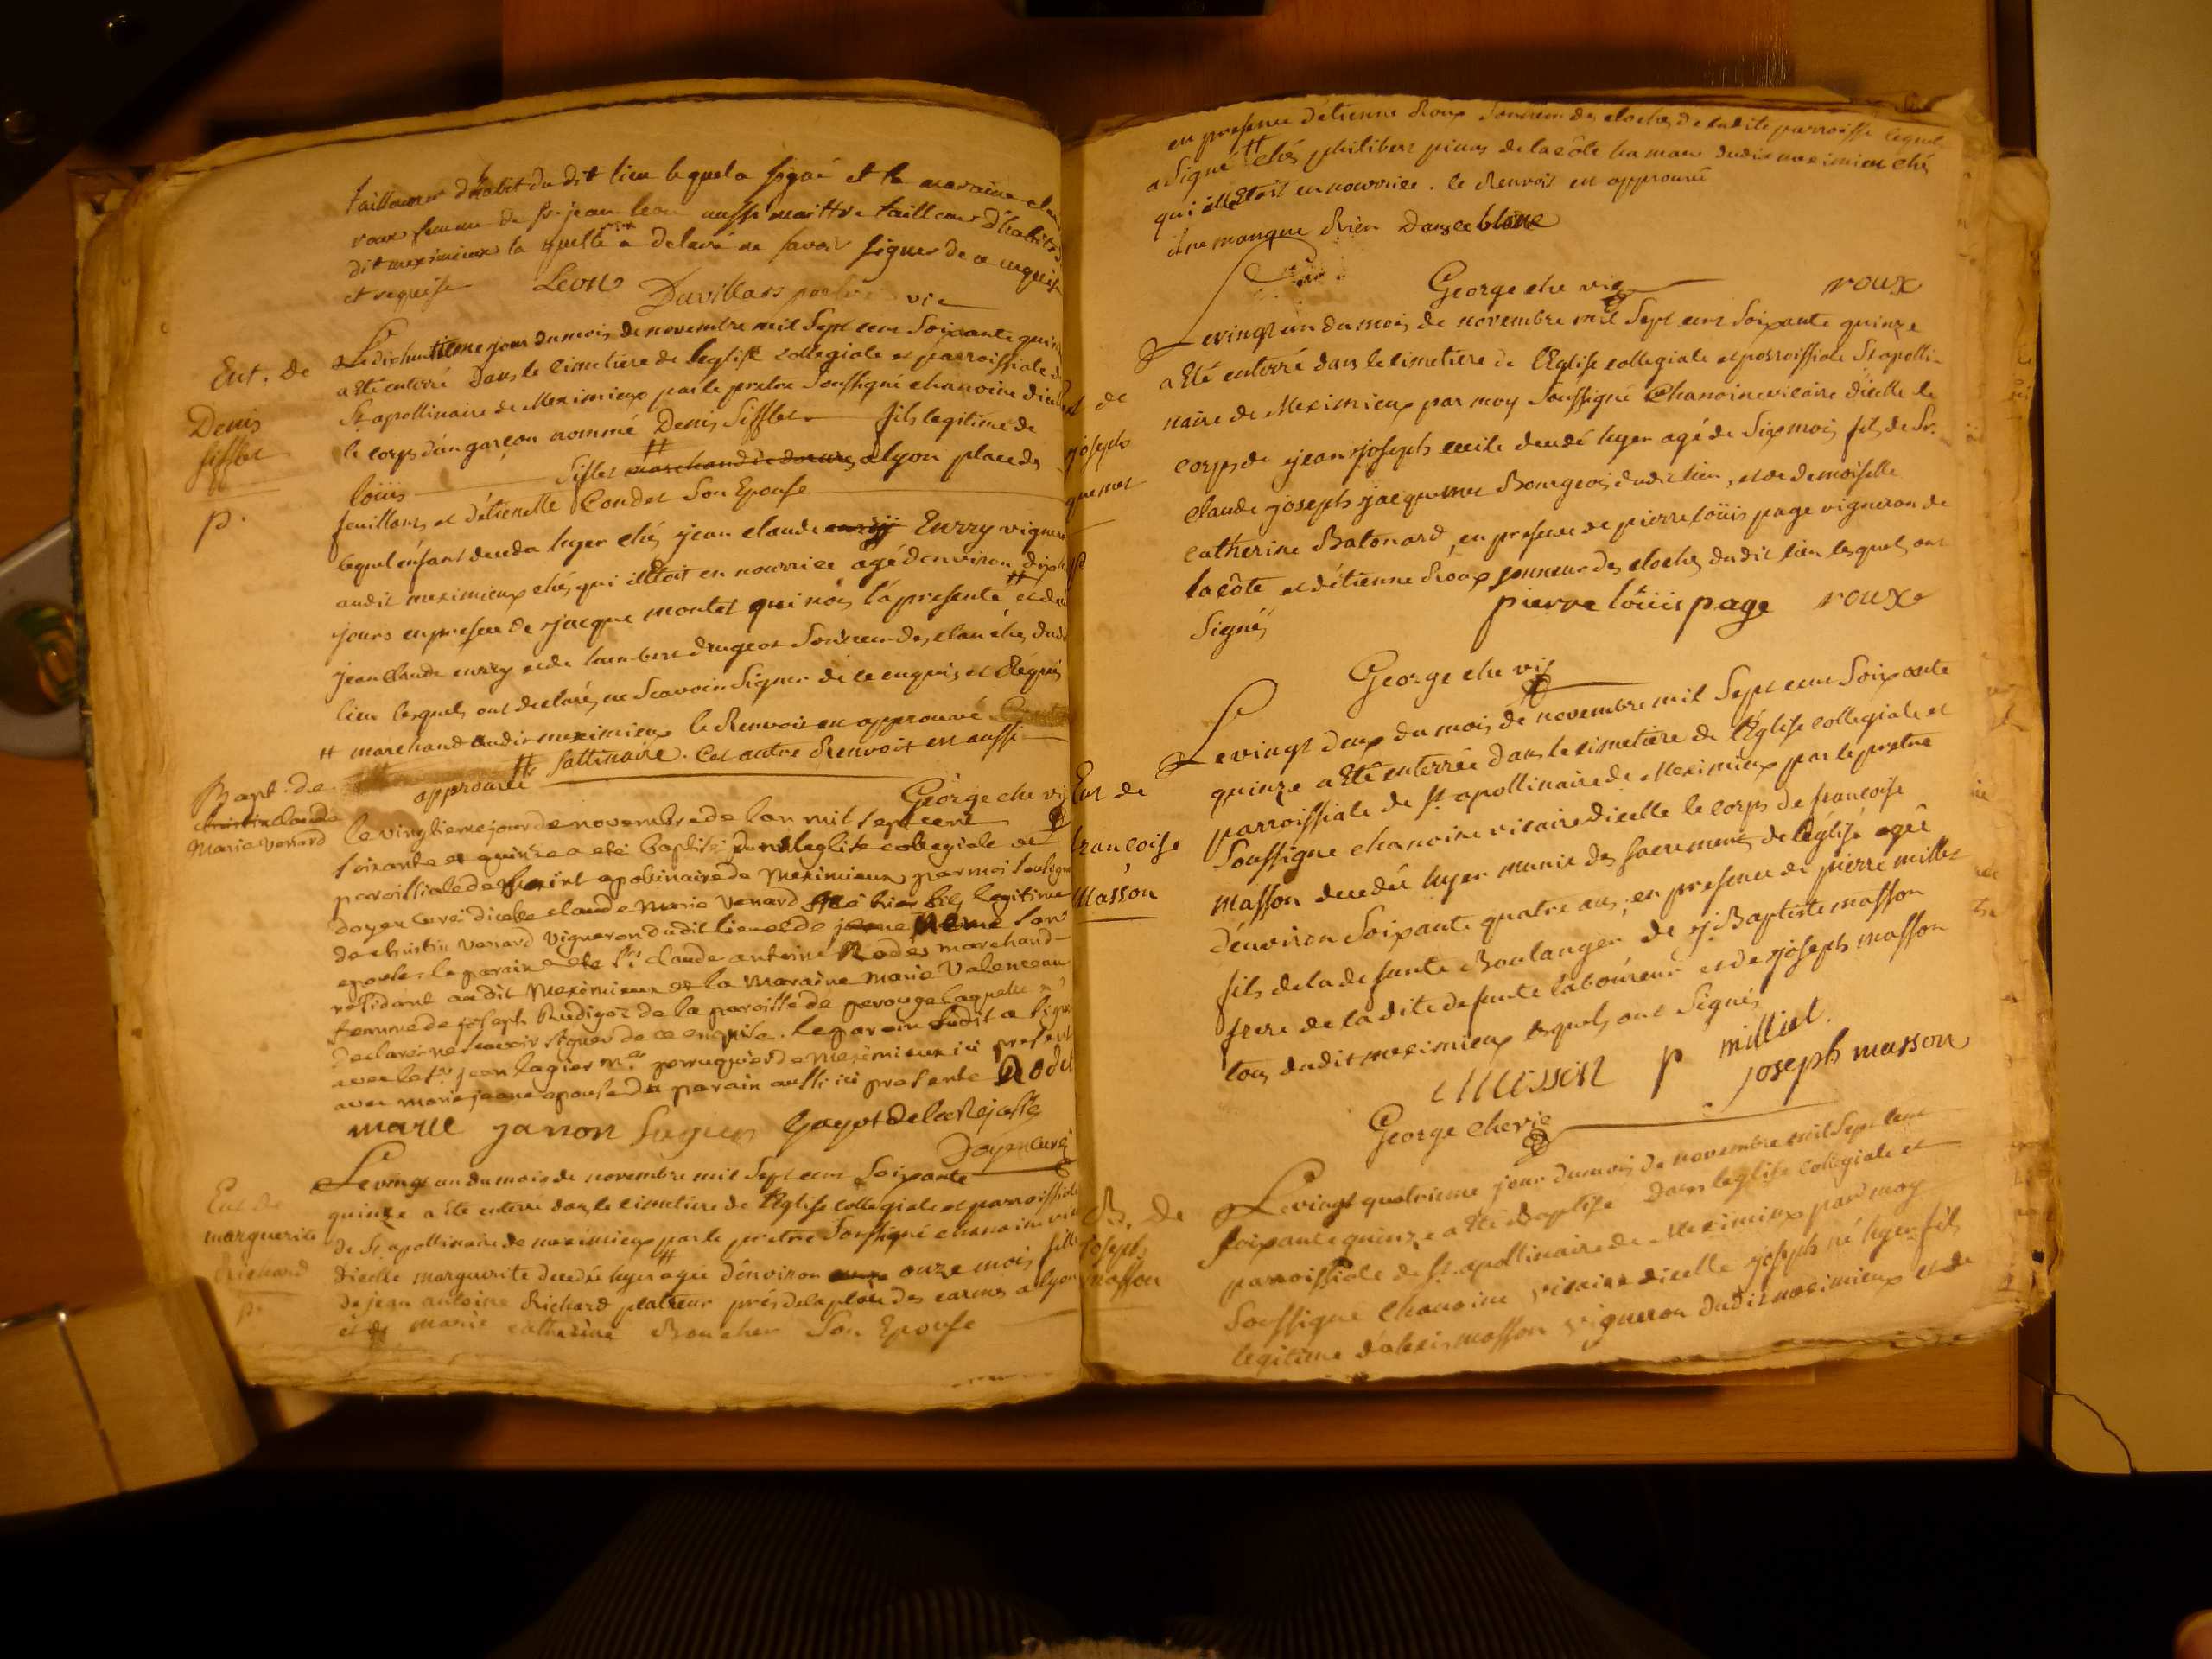 tailleur d'habit du dit lieu lequel a signé et la maraine
roux femme de Sr. jean leon aussi maittre tailleur d'habits
dit meximieux la quelle a declaré ne savoir signer de ce enquise
et requise Leon Duvillars vic
Ent. de
Denis
Sifflet
p.
Le dichuitieme jour du mois de novembre mil Sept cent Soixante quin
a Eté enterré Dans le cimetiere de l'eglise collegiale et parroissiale de
St. apollinaire de Meximieux par le pretre Soussigné chanoine
le corps d'un garçon nommé Denis Sifflet fils legitime de
loüis Siflet marchand a lyon place des
feuillans et d'étienette Condet Son Epouse
lequel enfant deceda hyer chés jean claude Eurry vigneron
audit meximieux chés qui il Etoit en nourrice agé d'environ
jours en presence de jacque montet qui nous l'a presenté et de
jean Claude eurry et de lambert drugeot Sonneur des clauches dudit
lieu lesquels ont declarés ne Scavoir Signer de ce enquis et Réquis
# marchand audit meximieux le Renvoit en approuvé
# Sattinaire. Cet autre Renvoit est aussi
approuvé
George che vic
Bapt. de
claude
Marie Venard
le vingtieme jour de novembre de lan mil sept cent
soixante et quinze a eté baptisé dans leglise collegiale et
paroissiale de saint apolinaire de Meximieux par moi soussigné
doyen curé dicelle claude Marie Venard né hier fils legitime
de christin Venard vigneron dudit lieu et de son
epouse. le parain a eté Sr. claude antoine Rodés marchand
residant audit Meximieux et la Maraine Marie Valenceau
femme de joseph Rudigoz de la paroisse de perouge laquelle n'a
declaré ne scavoir signer de ce enquise. le parain susdit a signé
avec le Sr. jean lagier me. perruquier de Meximieux ici present
avec marie jeane epouse du parain aussi ici presente Rodet
marie janon Lagier Gayot de la Rejasse
Doyen curé
Ent. de
marguerite
Richard
p.
Le vingt un du mois de novembre mil Sept cent Soixante
quinze a Eté enterré dans le cimetiere de l'Eglise collegiale et parroissiale
de St. apollinaire de meximieux par le pretre Soussigné chanoine vic
dicelle marguerite decedée hyer # agée d'environ onze mois fille
de jean antoine Richard platreur prés de la place des carmes a lyon
et de marie catherine Boucher Son Epouse
en presence d'étienne Roux Sonneur des cloches de ladite parroisse lequel
a Signé # chés philibert de la côte hameau dudit meximieux chés
qui elle Etoit en nourrice. le Renvoit est approuvé
il ne manque Rien Dans ce blanc
George che vic roux
Ent de
joseph
quemet
p
Le vingt un du mois de novembre mil Sept cent Soixante quinze
a Eté enterré dans le cimetiere de l'Eglise collegiale et parroissiale St apolli-
naire de Meximieux par moy Soussigné Chanoine vicaire dicelle le
corps de jean joseph decedé hyer agé de Six mois fils de Sr.
claude joseph jacquemet Bourgeois dudit lieu, et de demoiselle
catherine Batonard, en presence de pierre loüis page vigneron de
la côte et d'étienne Roux Sonneur des cloches dudit lieu lesquels ont
Signés pierre loüis page roux
George che vic
Ent de
francoise
Masson
Le vingt deux du mois de novembre mil Sept cent Soixante
quinze a Eté enterrée dans le cimetiere de l'Eglise collegiale et
parroissiale de St. apollinaire de Meximieux par le pretre
Soussigné chanoine vicaire dicelle le corps de francoise
masson decedée hyer munie des Sacrements de l'église agée
d'environ Soixante quatre ans, en presence de pierre millet
fils de la defunte Boulanger de j. Baptiste masson
frere de la dite defunte laboureur et de joseph masson
tous dudit meximieux lesquels ont Signés
Masson p milliet.
George che vic joseph masson
B. de
joseph
masson
Le vingt quatrieme jour du mois de novembre mil Sept cent
soixante quinze a Eté Baptisé Dans leglise collegiale et
parroissiale de St. apollinaire de Meximieux par moy
Soussigné Chanoine vicaire dicelle joseph né hyer fils
legitime d'alexis masson vigneron dudit meximieux et de